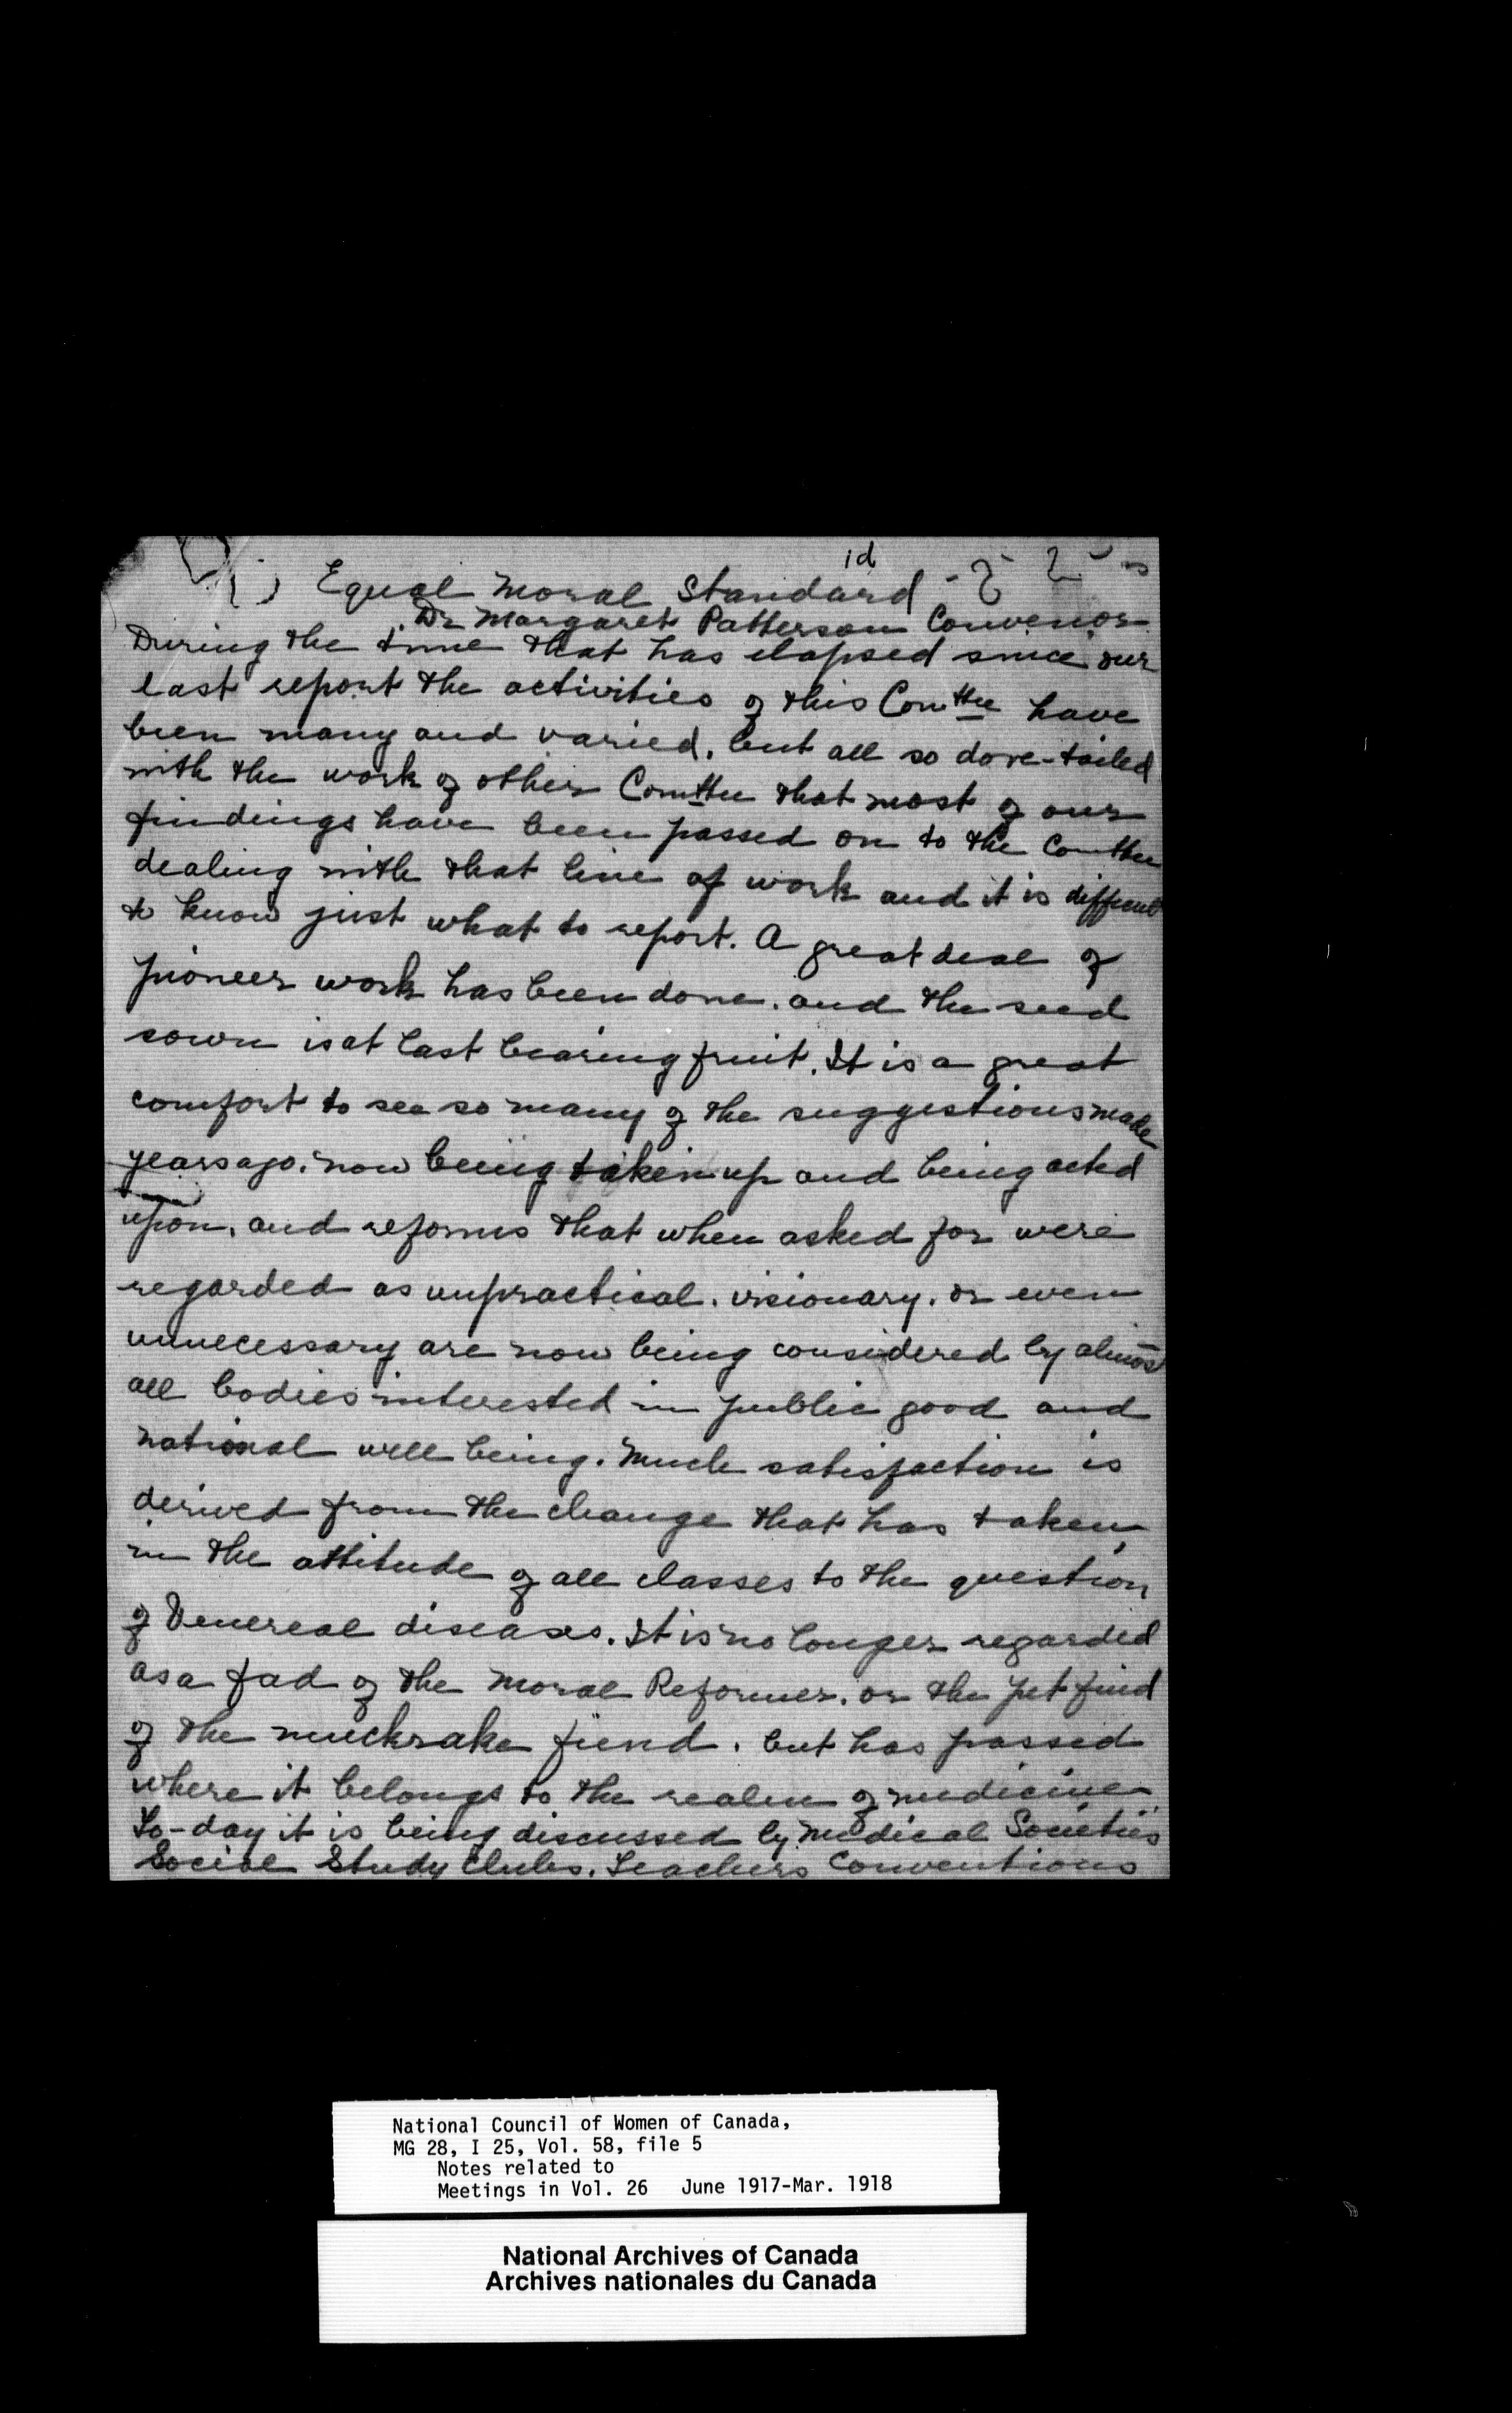 id
Equal Moral Standard
Dr Margaret Patterson Convenor
During the time that has elapsed since our
last report the activities of this Comttee have
been many and varied, but all so dove-tailed
with the work of other Comttee that most of our
findings have been passed on to the Comttee
dealing with that line of work and it is difficult
to know just what to report. A great deal of
pioneer work has been done, and the seed
sown is at last bearing fruit. It is a great
comfort to see so many of the suggestions made
years ago, now being taken up and being acted
upon, and reforms that when asked for were
regarded as unpractical, visionary, or even
unnecessary are now being considered by almost
all bodies interested in public good and
national well being. Much satisfaction is
derived from the change that has taken
in the attitude of all classes to the question
of Venereal diseases. It is no longer regarded
as a fad of the Moral Reformer, or the pet find
of the muckrake fiend, but has passed
where it belongs to the realm of medicine
To-day it is being discussed by Medical Societies
Social Study Clubs, Teachers Conventions
National Council of Women of Canada,
MG 28, I 25, Vol. 58, file 5
Notes related to
Meetings in Vol. 26 June 1917-Mar. 1918
National Archives of Canada
Archives nationales du Canada